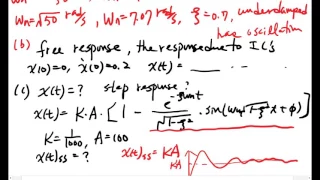 Wn=√50 rad/s, Wn=7.07 rad/s, ξ=0.7, underdamped
has oscillation
(b) free response, the response due to ICs
x(0)=0, ẋ(0)=0.2 x(t)=
(c) x(t)=? step response?
x(t)=K·A·[1 - e^(-ξωnt)/√(1-ξ²) · sin(ωn√(1-ξ²)t+φ)]
K=1/1000, A=100
x(t)ss=? x(t)ss=KA
KA